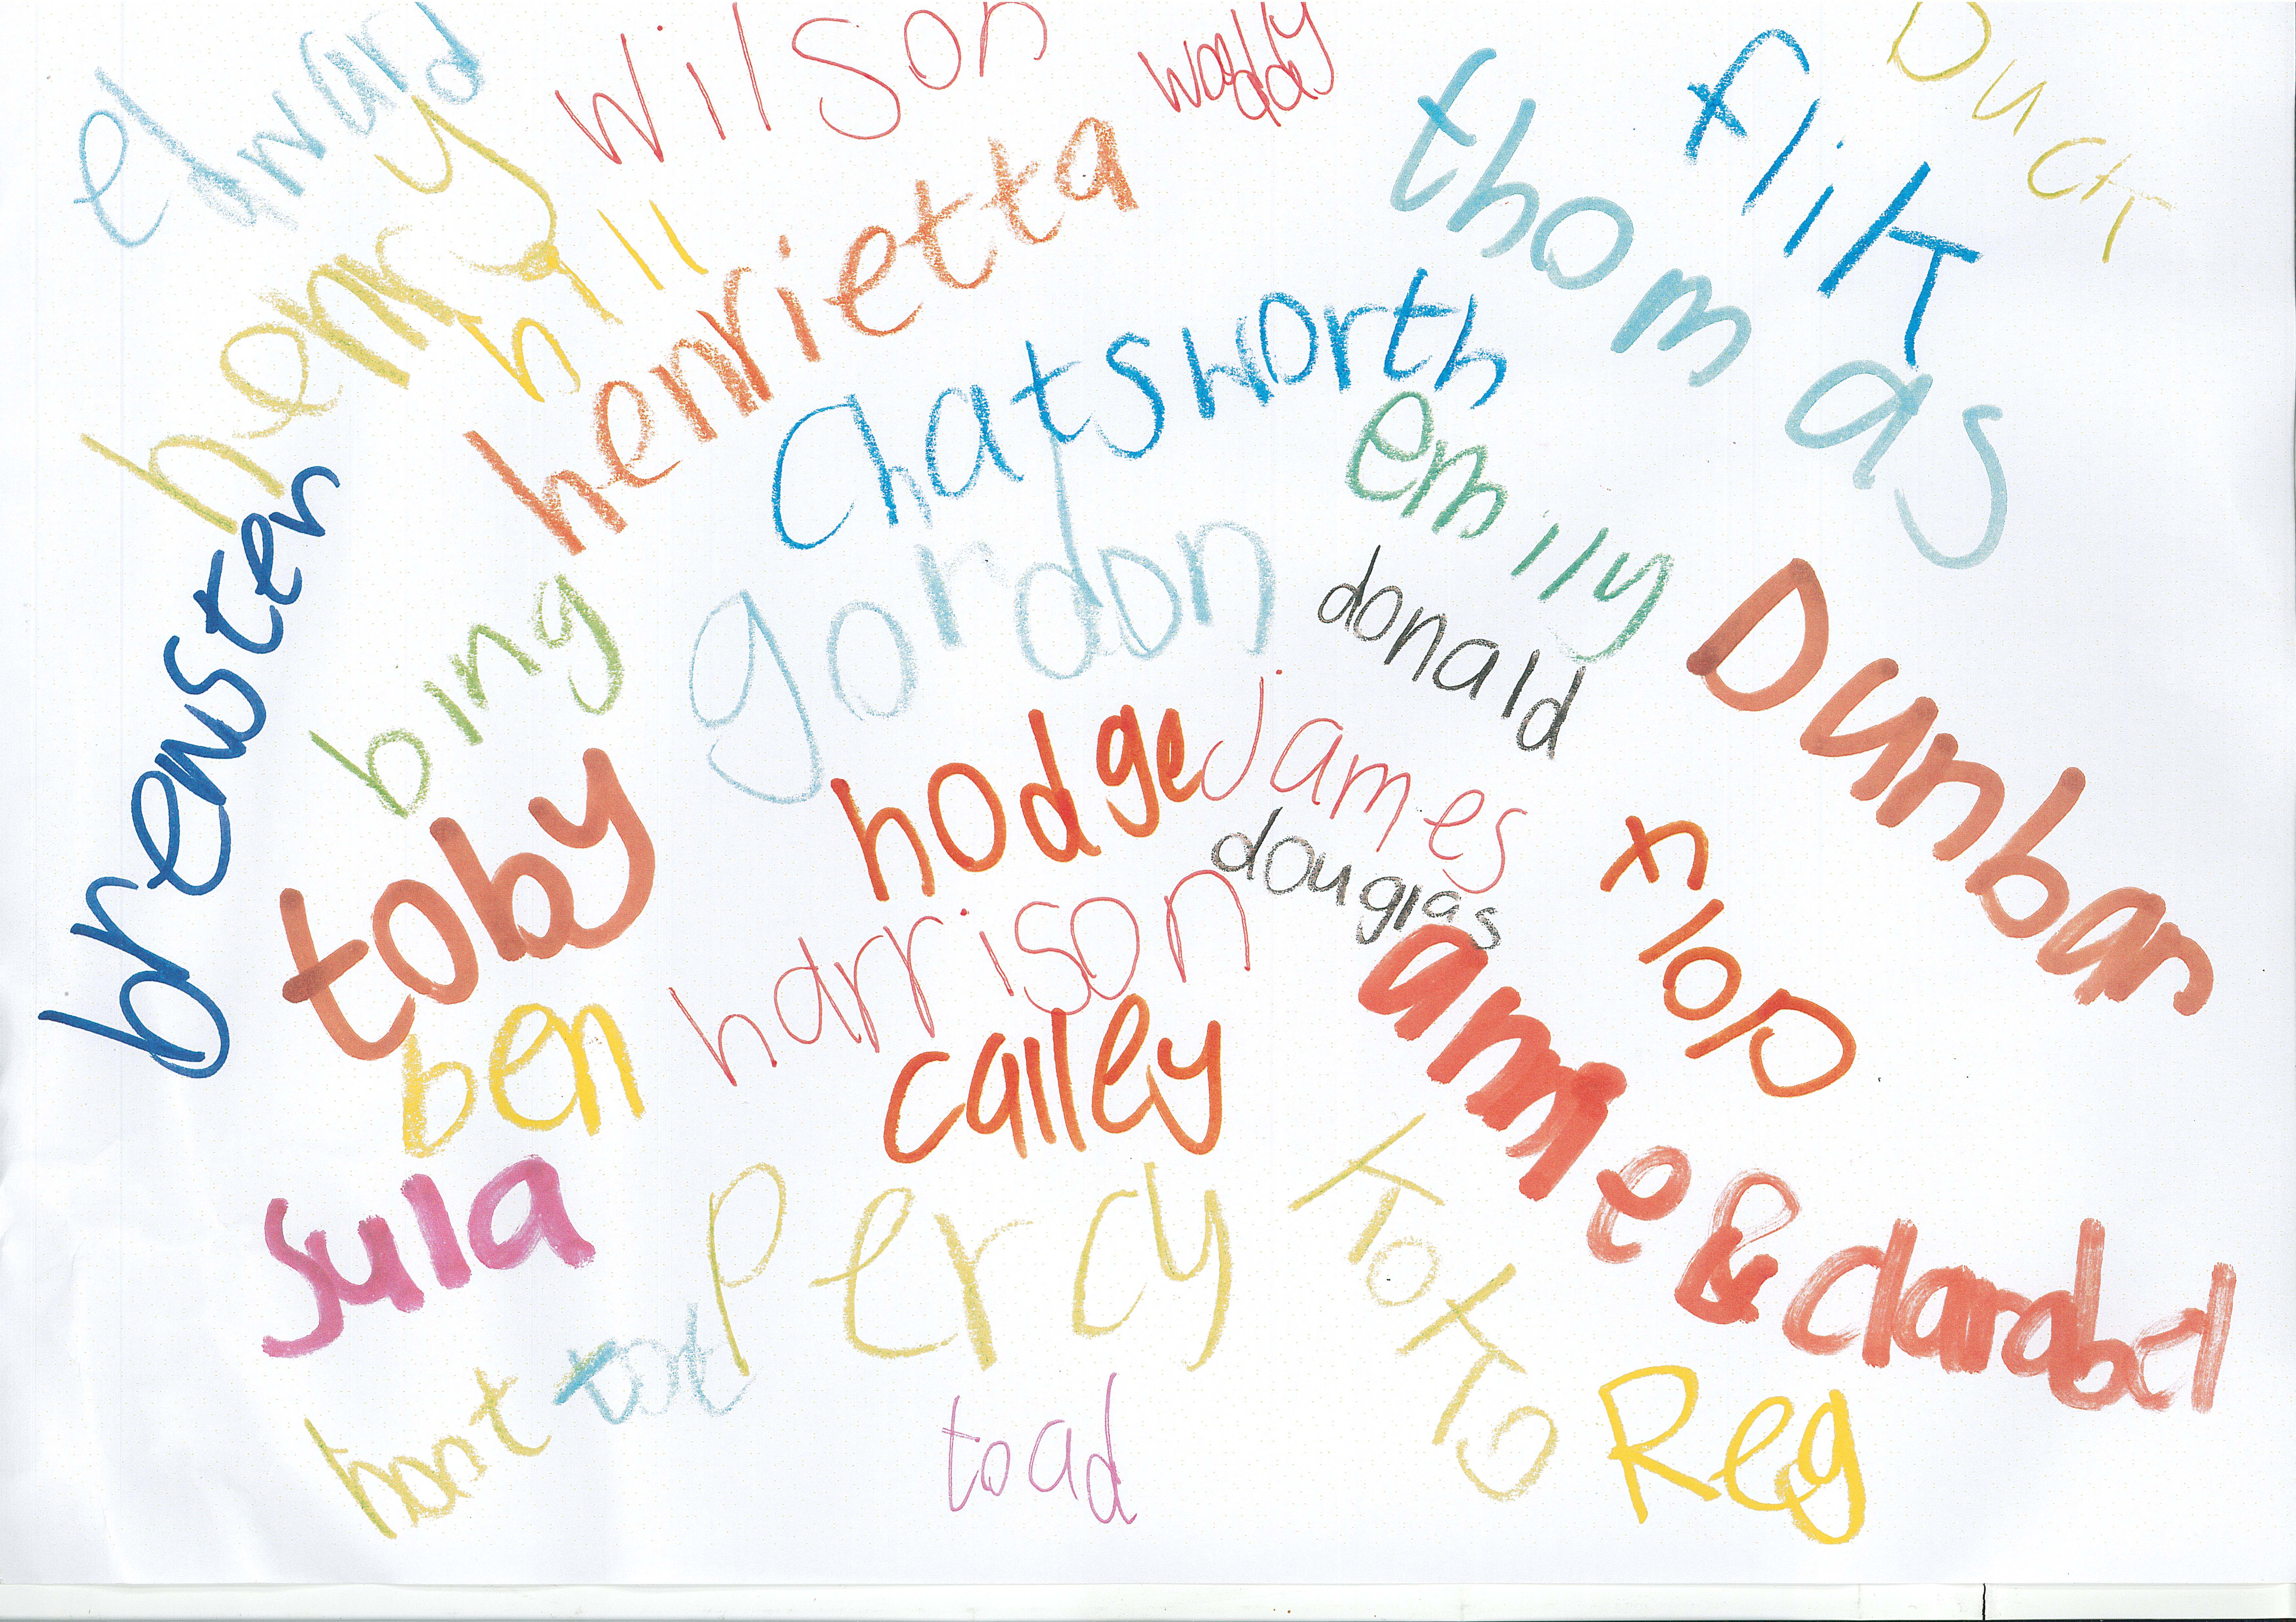 edward
wilson
waddy
Duck
flik
thomas
henry
bill
henrietta
Chatsworth
emily
brewster
bing
gordon
donald
Dunbar
toby
hodge
james
douglas
flop
ben
harrison
calley
annie & clarabel
sula
Percy
Koko
hoot
toot
toad
Reg